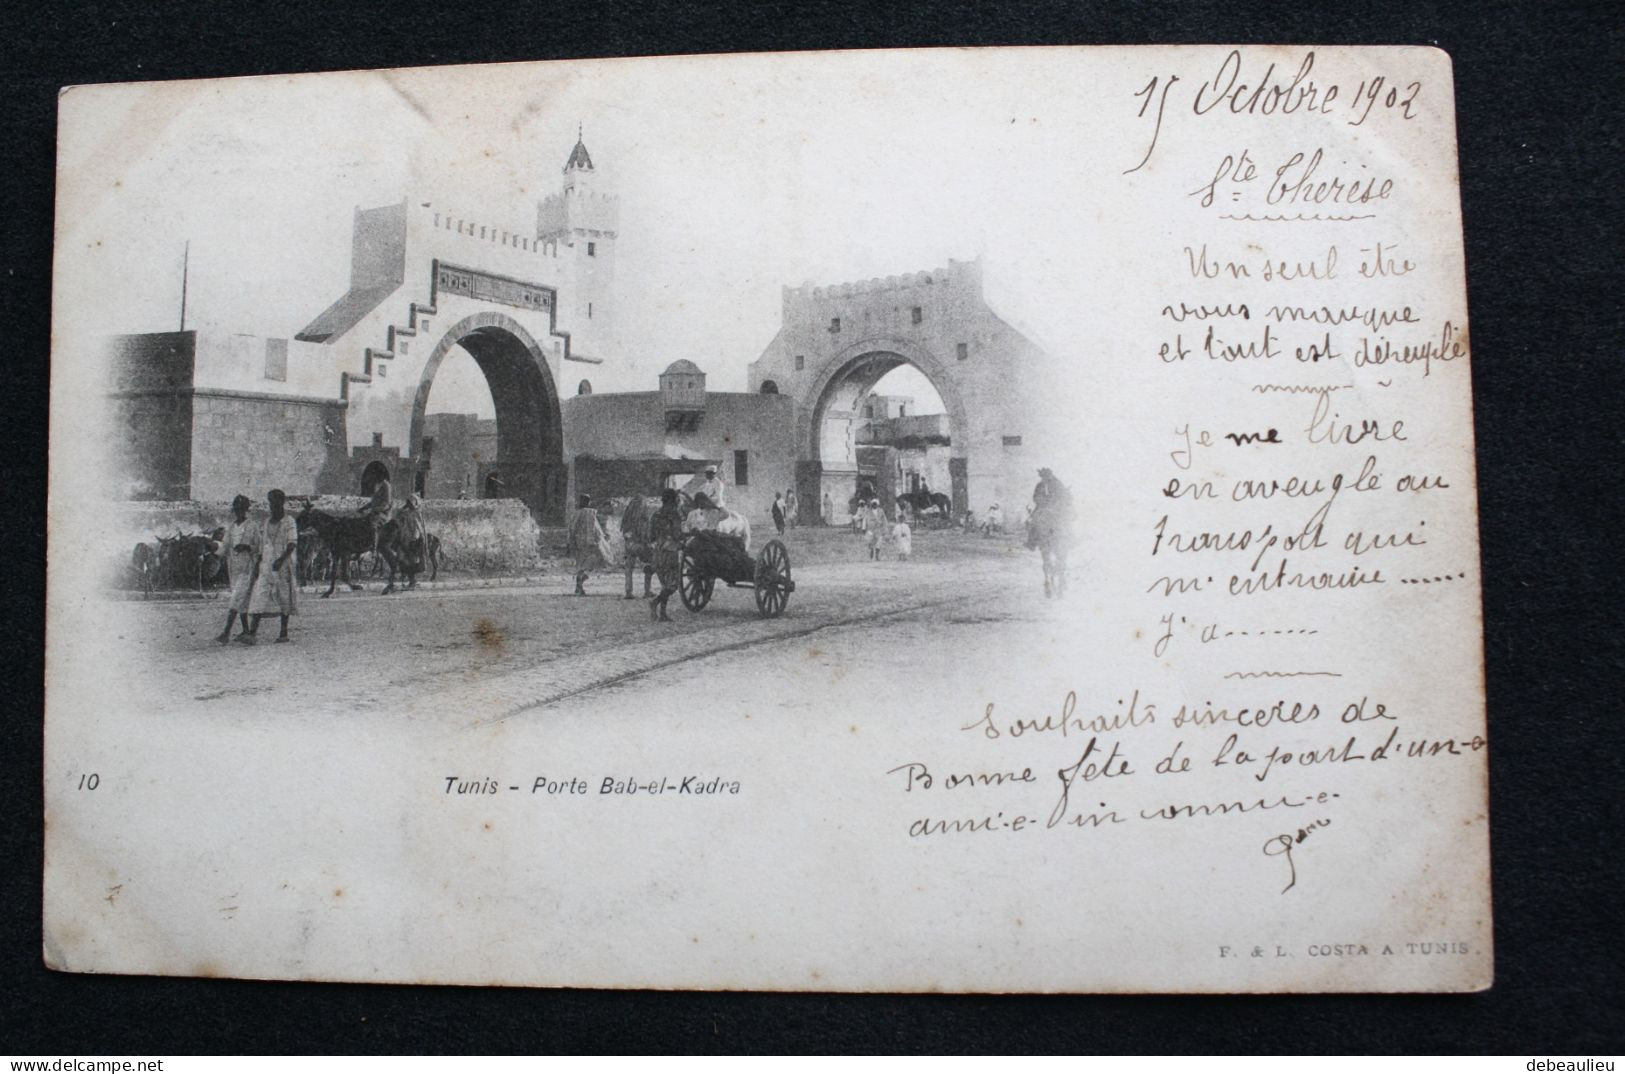 15 Octobre 1902
Ste Thérèse
Un seul être
vous manque
et tout est dépeuplé
Je me livre
en aveugle au
transport qui
m'entraine ......
J'a........
Souhaits sincères de
Bonne fête de la part d'un-e
ami-e- inconnu-e-
10
Tunis - Porte Bab-el-Kadra
F. & L. COSTA A TUNIS.
debeaulieu